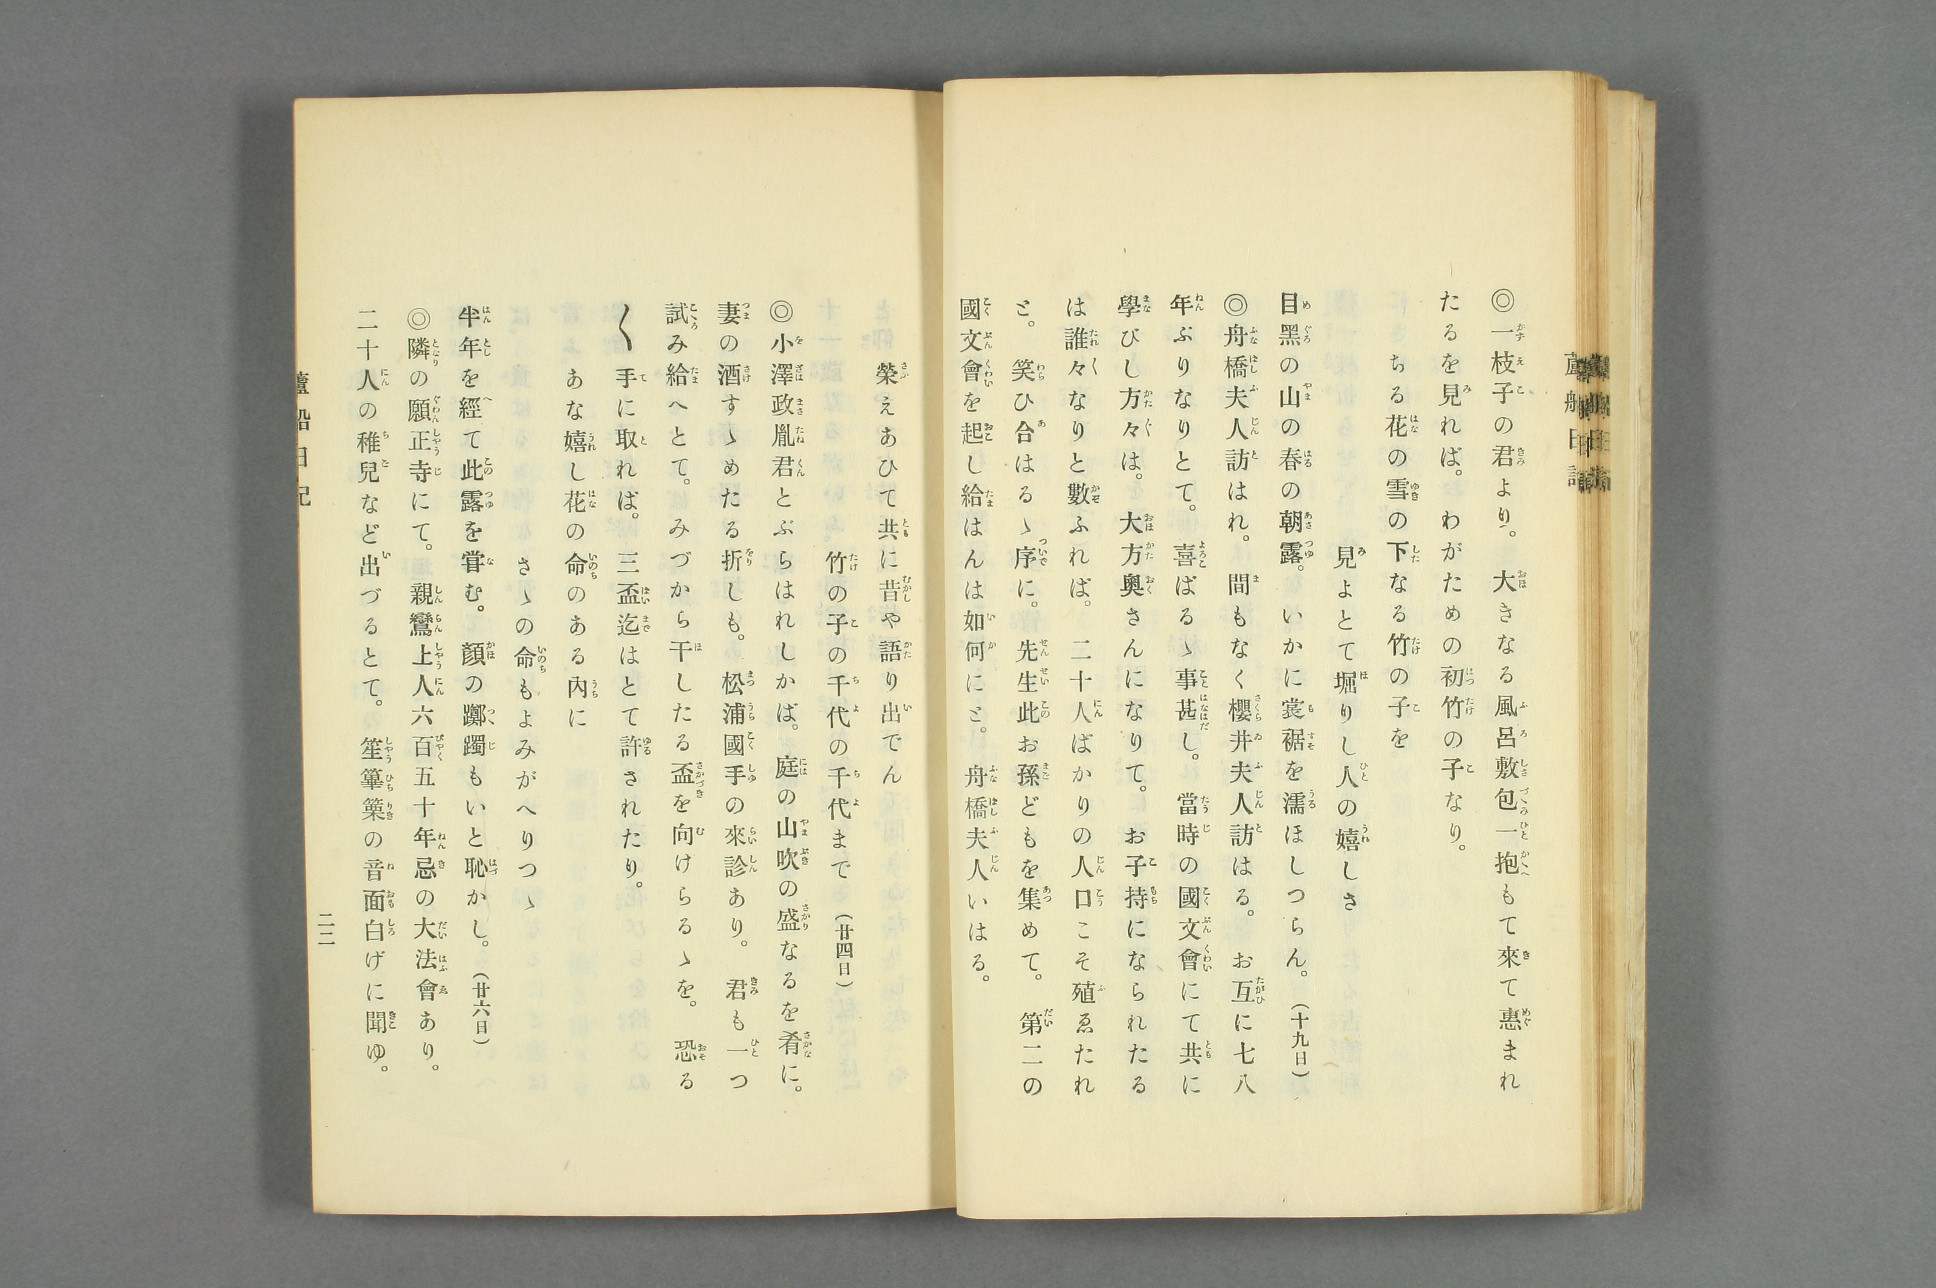 ◎一枝子の君より。大きなる風呂敷包一抱もて來て惠まれ
たるを見れば。わがための初竹の子なり。
ちる花の雪の下なる竹の子を
見よとて堀りし人の嬉しさ
目黑の山の春の朝露。いかに裳裾を濡ほしつらん。(十九日)
◎舟橋夫人訪はれ。間もなく櫻井夫人訪はる。お互に七八
年ぶりなりとて。喜ばるゝ事甚し。當時の國文會にて共に
學びし方々は。大方奧さんになりて。お子持になられたる
は誰々なりと數ふれば。二十人ばかりの人口こそ殖ゑたれ
と。笑ひ合はるゝ序に。先生此お孫どもを集めて。第二の
國文會を起し給はんは如何にと。舟橋夫人いはる。
榮えあひて共に昔や語り出でん
竹の子の千代の千代まで(廿四日)
◎小澤政胤君とぶらはれしかば。庭の山吹の盛なるを肴に。
妻の酒すゝめたる折しも。松浦國手の來診あり。君も一つ
試み給へとて。みづから干したる盃を向けらるゝを。恐る
〱手に取れば。三盃迄はとて許されたり。
あな嬉し花の命のある內に
さゝの命もよみがへりつゝ
半年を經て此露を甞む。顏の躑躅もいと恥かし。(廿六日)
◎隣の願正寺にて。親鸞上人六百五十年忌の大法會あり。
二十人の稚兒など出づるとて。笙篳篥の音面白げに聞ゆ。
二二